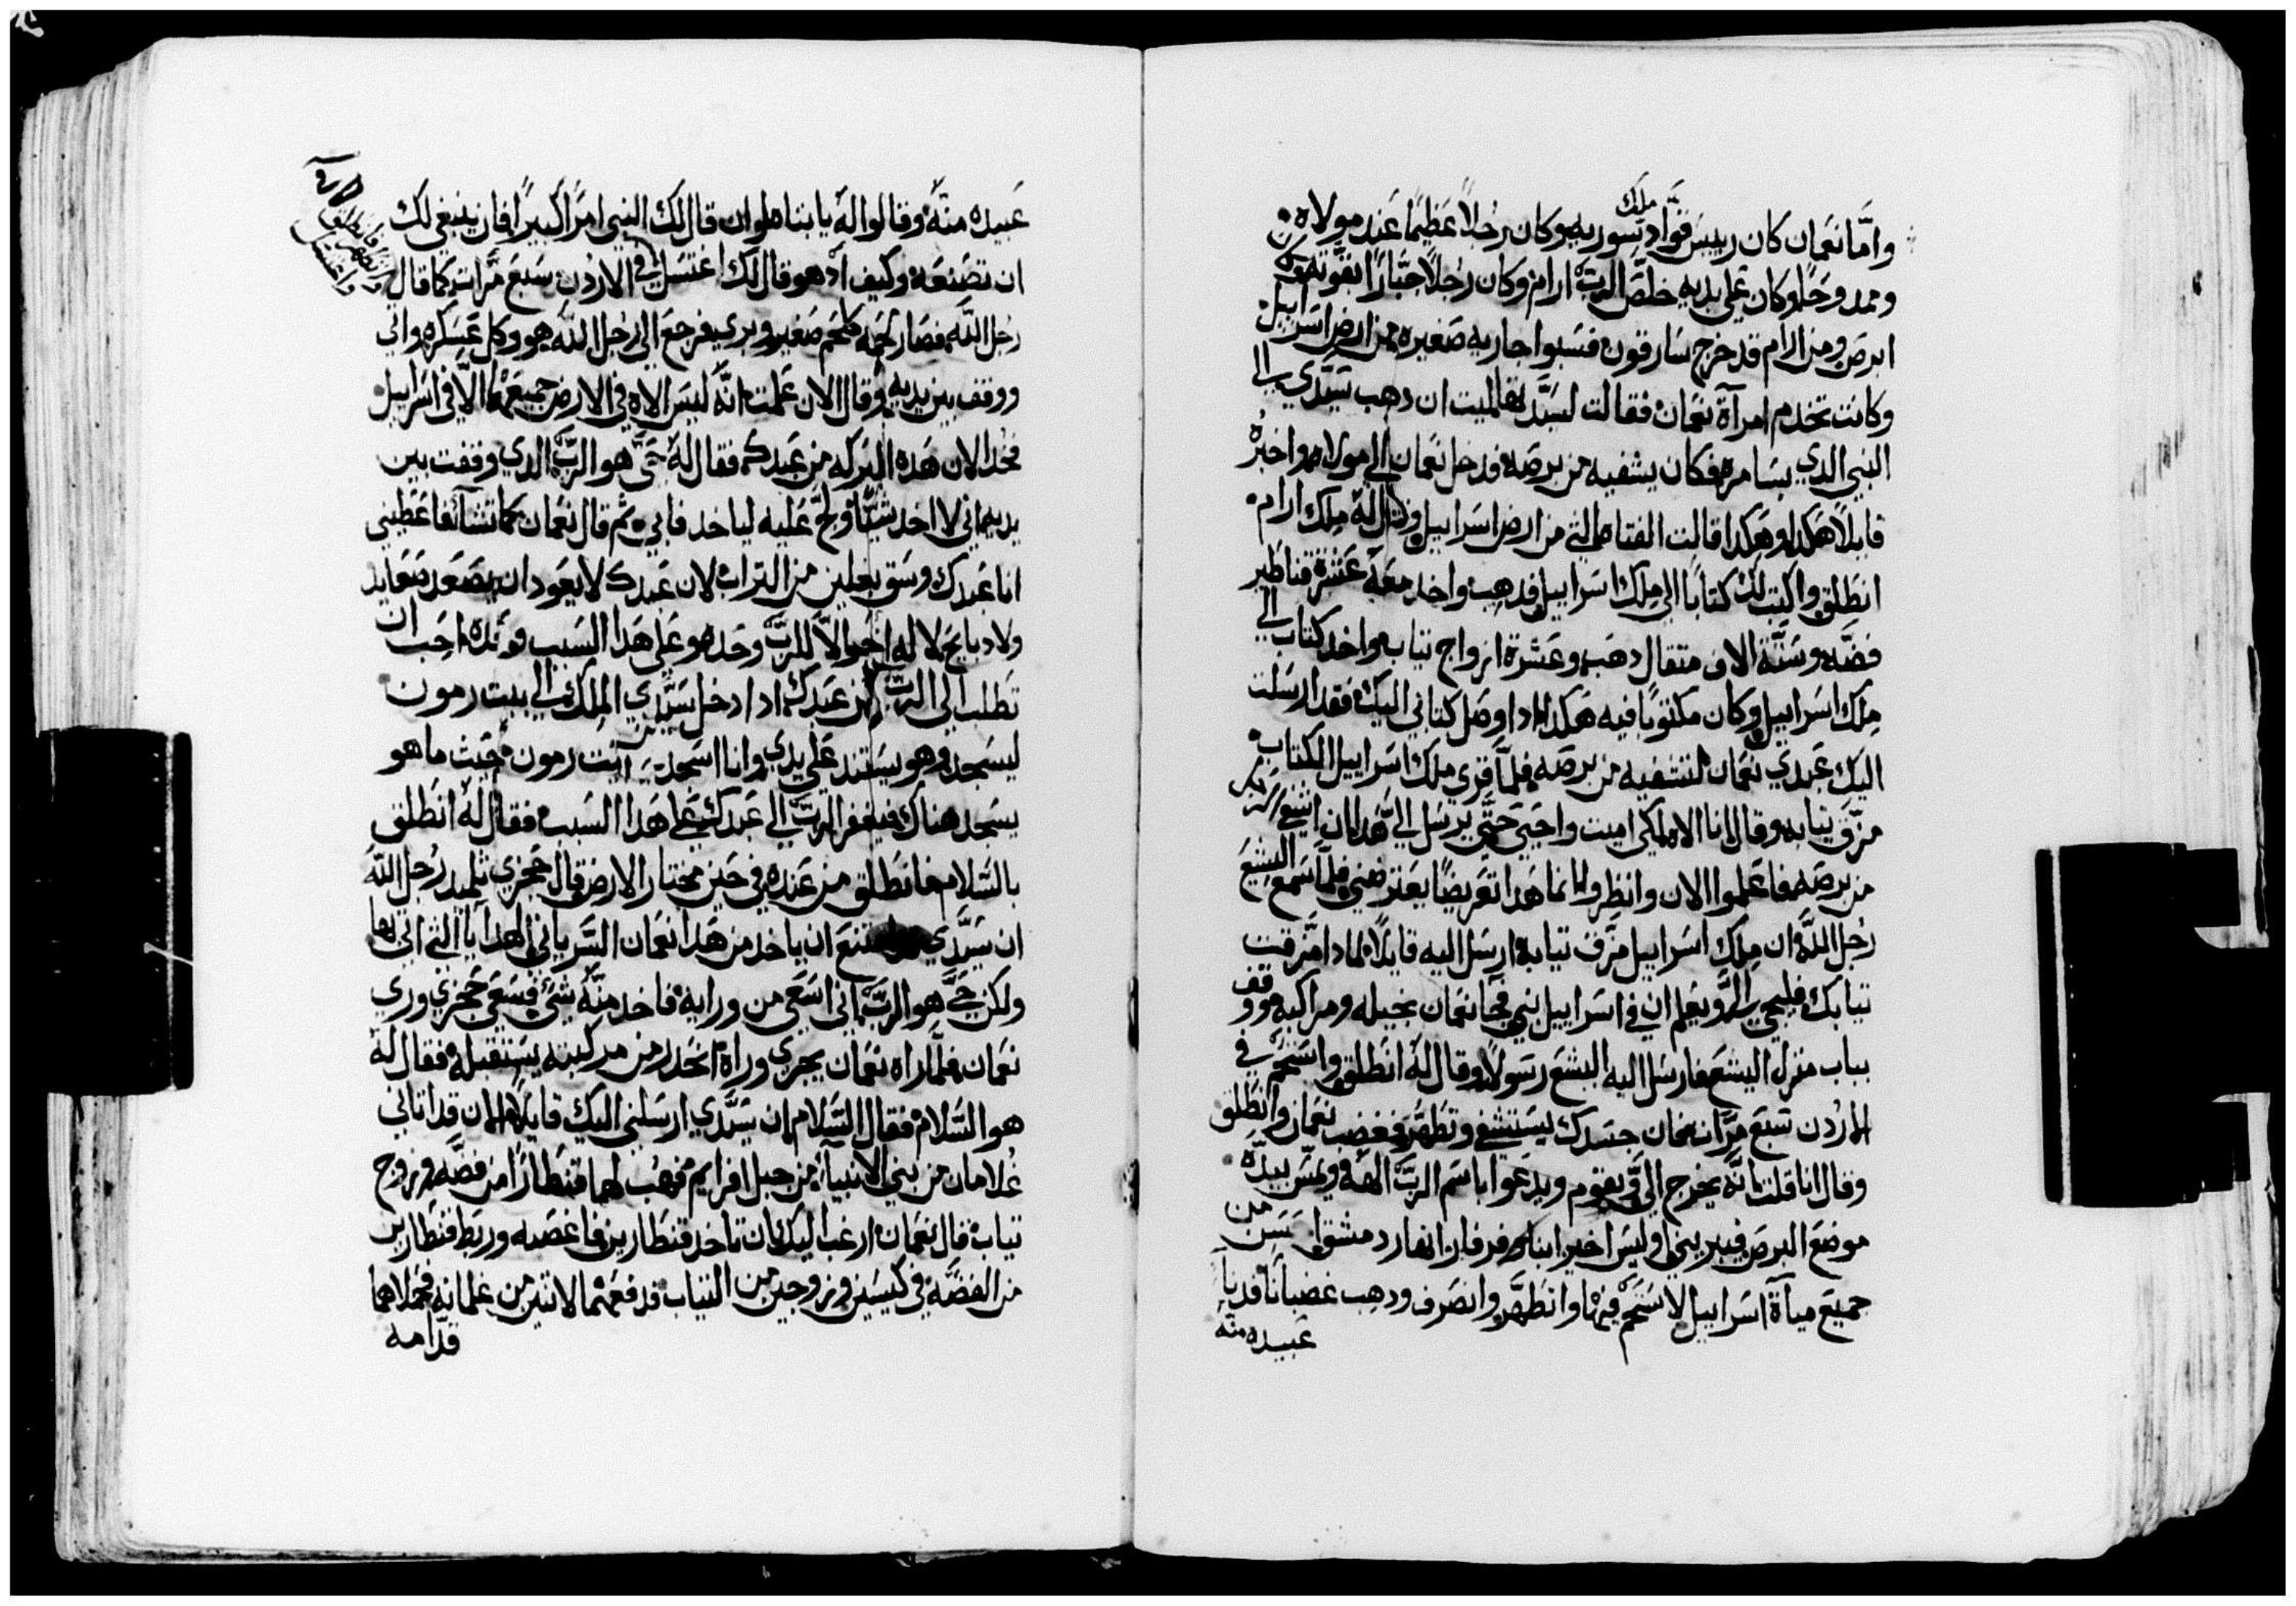 واما نعمان كان رييس قواد ملك سوريه وكان رجلا عظيما عند مولاه
وممدوحا وكان علي يديه خلص الرب ارام وكان رجلا جبارا بقوته وكان
ابرص ومن ارام قد خرج سارقون فسبوا جاريه صغيره من ارض اسراييل
وكانت تخدم امرآة نعمان فقالت لسيدتها ليت ان دهب سيدي الي
النبي الدي بسامره فكان يشفيه من برصه فدخل نعمان الي مولاه واخبره
قايلا هكدا وهكدا قالت الفتاه التي من ارض اسراييل وقال له ملك ارام
انطلق واكتب لك كتابا الي ملك اسراييل فدهب واخد معه عشرة قناطير
فضه وستة الاف متقال دهب وعشرة ازواج تياب واخد كتاب الي
ملك اسراييل وكان مكتوبا فيه هكدا ادا وصل كتابي اليك فقد ارسلت
اليك عبدي نعمان لتشفيه من برصه فلما قري ملك اسراييل الكتاب
مزق تيابه وقال انا الاه لكي اميت واحيي حتي يرسل الي هدا ان اشفي الرجل
من برصه فاعلموا الان وانظروا انما هدا تعريضا يعترضني فلما سمع اليشع
رجل الله ان ملك اسراييل مزق تيابه ارسل اليه قايلا لمادا مزقت
تيابك فليجي الي ويعلم ان في اسراييل نبي فجا نعمان بخيله ومراكبه ووقف
بباب منزل اليشع فارسل اليه اليشع رسولا وقال له انطلق واستحم في
الاردن سبع مرات فان جسدك يستشفي وتطهر فغضب نعمان وانطلق
وقال انا قلت انه يخرج الي ويقوم ويدعوا باسم الرب الهه ويمس بيده
موضع البرص فيبريني اوليس اخير ابنا وفرفار انهار دمشق احسن من
جميع مياآة اسراييل لاستحم فيهما وانطهر وانصرف ودهب غضبانا فدنا
عبيده منه
عبيده منه وقالوا له يا ابتاه لو ان قال لك النبي امرا كبيرا فان ينبغي لك
ان تصنعه وكيف اد هو قال لك اغتسل في الاردن سبع مرات كما قال
فانطلق
واغتسل
رجل الله فصار لحمه كلحم صغير وبري فرجع الي رجل الله هو وكل عسكره واتي
ووقف بين يديه وقال الان علمت انه ليس الاه في الارض جميعها الا في اسراييل
فخد الان هده البركه من عبدك فقال له حي هو الرب الدي وقفت بين
يديه اني لا اخد شيا ولج عليه لياخد فابي تم قال نعمان كما تشآ فاعطيني
انا عبدك وسق بغلين من التراب لان عبدك لا يعود ان يصعد صعايد
ولا دبايح لاله اخر الا للرب وحده وعلي هدا السبب وحده احب ان
تطلب الي الرب من عبدك ادا دخل سيدي الملك الي بيت رمون
ليسجد وهو يستند علي يدي وانا اسجد في بيت رمون حيث ما هو
يسجد هناك فيغفر الرب الي عبدك علي هدا السبب فقال له انطلق
بالسلام فانطلق من عنده في حين مختار الارض قال حجزي تلميد رجل الله
ان سيدي امتنع ان ياخد من هدا نعمان السرياني الهدايا التي اتي بها
ولكن حي هو الرب اني اسعي من ورايه فاخد منه شي فسعي حجزي وري
نعمان فلما راه نعمان يجري وراه انحدر من مركبته يستقبله فقال له
هو السلام فقال السلام ان سيدي ارسلني اليك قايلا الان قد اتاني
غلامان من بني الانبيآ من جبل افرايم فهب لهما قنطارا من فضه وزوج
تياب قال نعمان ارغب اليك ان تاخد قنطارين فاغصبه وربط قنطارين
من الفضه في كيسين وزوجين من التياب فدفعهما لاتنين من غلمانه فحملاهما
قدامه